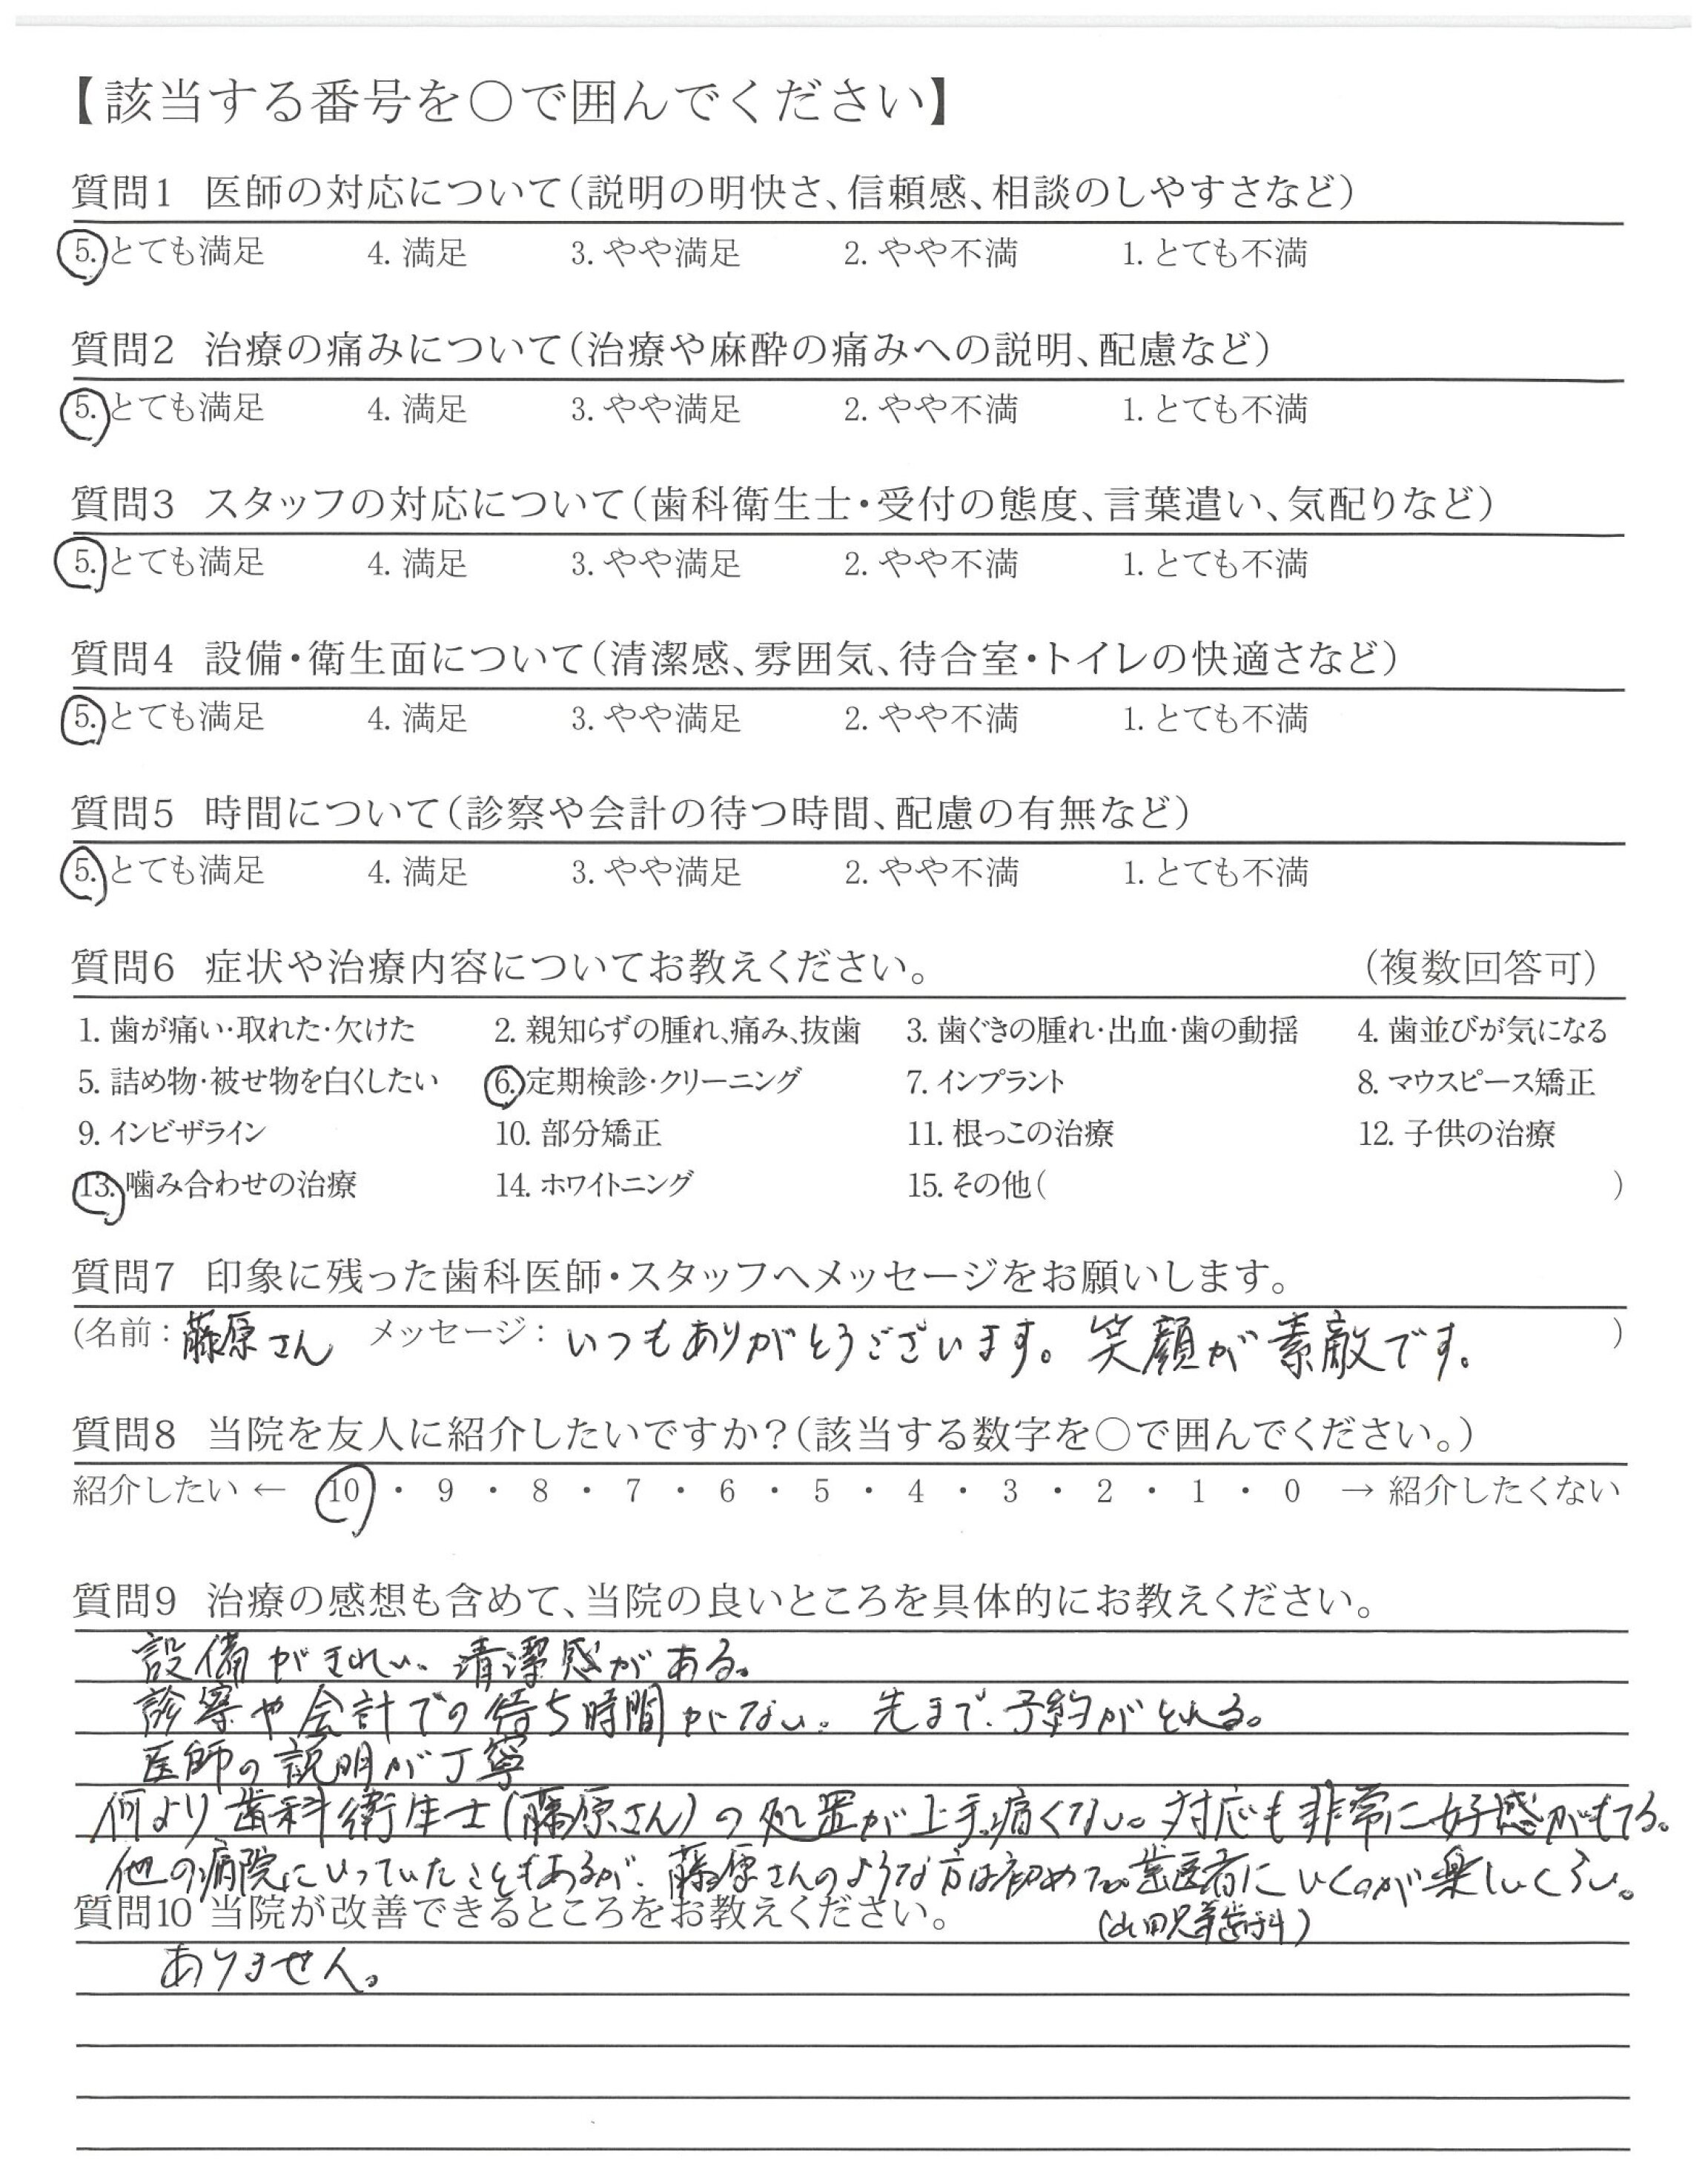 【該当する番号を○で囲んでください】
質問1 医師の対応について(説明の明快さ、信頼感、相談のしやすさなど)
5. とても満足 4. 満足 3. やや満足 2. やや不満 1. とても不満
質問2 治療の痛みについて(治療や麻酔の痛みへの説明、配慮など)
5. とても満足 4. 満足 3. やや満足 2. やや不満 1. とても不満
質問3 スタッフの対応について(歯科衛生士・受付の態度、言葉遣い、気配りなど)
5. とても満足 4. 満足 3. やや満足 2. やや不満 1. とても不満
質問4 設備・衛生面について(清潔感、雰囲気、待合室・トイレの快適さなど)
5. とても満足 4. 満足 3. やや満足 2. やや不満 1. とても不満
質問5 時間について(診察や会計の待つ時間、配慮の有無など)
5. とても満足 4. 満足 3. やや満足 2. やや不満 1. とても不満
質問6 症状や治療内容についてお教えください。 (複数回答可)
1. 歯が痛い・取れた・欠けた 2. 親知らずの腫れ、痛み、抜歯 3. 歯ぐきの腫れ・出血・歯の動揺 4. 歯並びが気になる
5. 詰め物・被せ物を白くしたい 6. 定期検診・クリーニング 7. インプラント 8. マウスピース矯正
9. インビザライン 10. 部分矯正 11. 根っこの治療 12. 子供の治療
13. 噛み合わせの治療 14. ホワイトニング 15. その他( )
質問7 印象に残った歯科医師・スタッフへメッセージをお願いします。
(名前:藤原さん メッセージ:いつもありがとうございます。笑顔が素敵です。 )
質問8 当院を友人に紹介したいですか?(該当する数字を○で囲んでください。)
紹介したい ← 10 ・ 9 ・ 8 ・ 7 ・ 6 ・ 5 ・ 4 ・ 3 ・ 2 ・ 1 ・ 0 → 紹介したくない
質問9 治療の感想も含めて、当院の良いところを具体的にお教えください。
設備がきれい、清潔感がある。
診察や会計での待ち時間がない。先まで予約がとれる。
医師の説明が丁寧
何より歯科衛生士(藤原さん)の処置が上手。痛くない。対応も非常に好感がもてる。
他の病院にいっていたこともあるが、藤原さんのような方は初めて。歯医者にいくのが楽しいくらい。
(山田兄弟歯科)
質問10 当院が改善できるところをお教えください。
ありません。